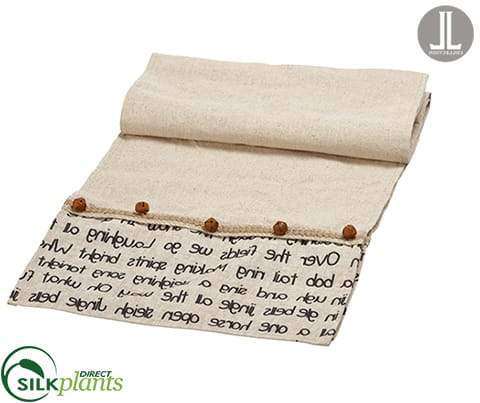 JL
Over the fields we go Laughing all
a bob tail ring Making spirits bright What
and sing a sleighing song tonight
bells jingle all the way Oh what f
all a one horse open sleigh jingle bells
DIRECT
SILKplants